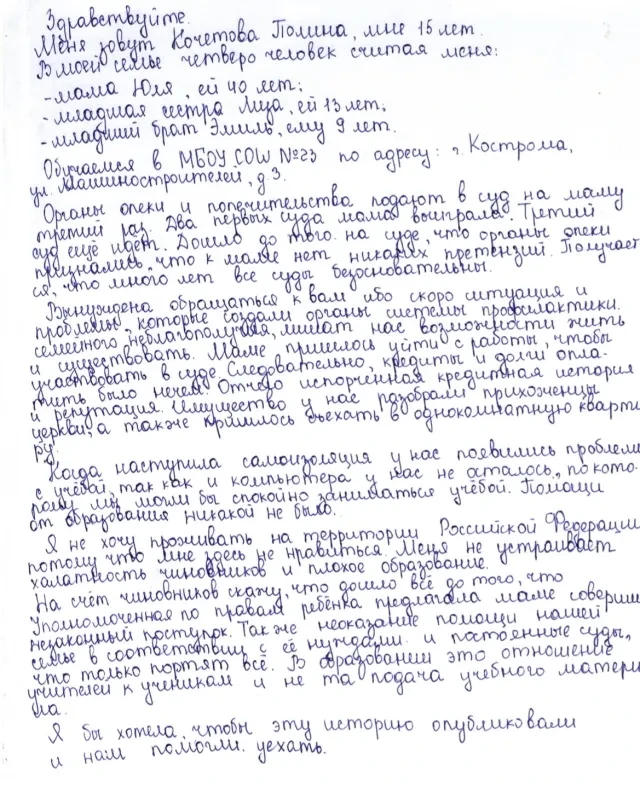 Здравствуйте.
Меня зовут Кочетова Полина, мне 15 лет.
В моей семье четверо человек считая меня:
- мама Юля, ей 40 лет;
- младшая сестра Лиза, ей 13 лет;
- младший брат Эмиль, ему 9 лет.
Обучаемся в МБОУ СОШ №23 по адресу: г. Кострома,
ул. Машиностроителей, д 3.
Органы опеки и попечительства подают в суд на маму
третий раз. Два первых суда мама выиграла. Третий
суд ещё идёт. Дошло до того на суде, что органы опеки
признались, что к маме нет никаких претензий. Получает
ся, что много лет все суды безосновательны.
Вынуждена обращаться к вам ибо скоро ситуация и
проблемы, которые создали органы системы профилактики
семейного неблагополучия, лишат нас возможности жить
и существовать. Маме пришлось уйти с работы, чтобы
участвовать в суде. Следовательно, кредиты и долги опла-
тить было нечем. Отчего испорченная кредитная история
и репутация. Имущество у нас разобрали прихоженцы
церкви, а также пришлось съехать в однокомнатную кварти
ру.
Когда наступила самоизоляция у нас появились проблемы
с учёбой, так как и компьютера у нас не осталось, по кото-
рому мы могли бы спокойно заниматься учёбой. Помощи
от образования никакой не было.
Я не хочу проживать на территории Российской Федерации
потому что мне здесь не нравиться. Меня не устраивает
халатность чиновников и плохое образование.
На счёт чиновников скажу, что дошло всё до того, что
Уполномоченная по правам ребёнка предлагала маме соверши
незаконный поступок. Так же неоказание помощи нашей
семье в соответствии с её нуждами и постоянные суды,
что только портят всё. В образовании это отношение
учителей к ученикам и не та подача учебного матери
ла.
Я бы хотела, чтобы эту историю опубликовали
и нам помогли уехать.